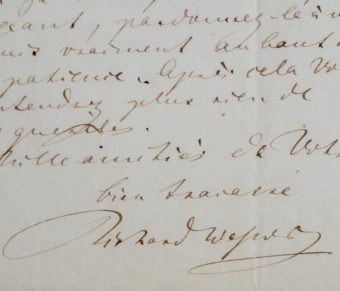 geant, pardonnez là à
vraiment au bout
patience. Après cela vo
tendrez plus rien de
quêtes.
Mille amitiés de Vot
bien tracassé
Richard Wagner